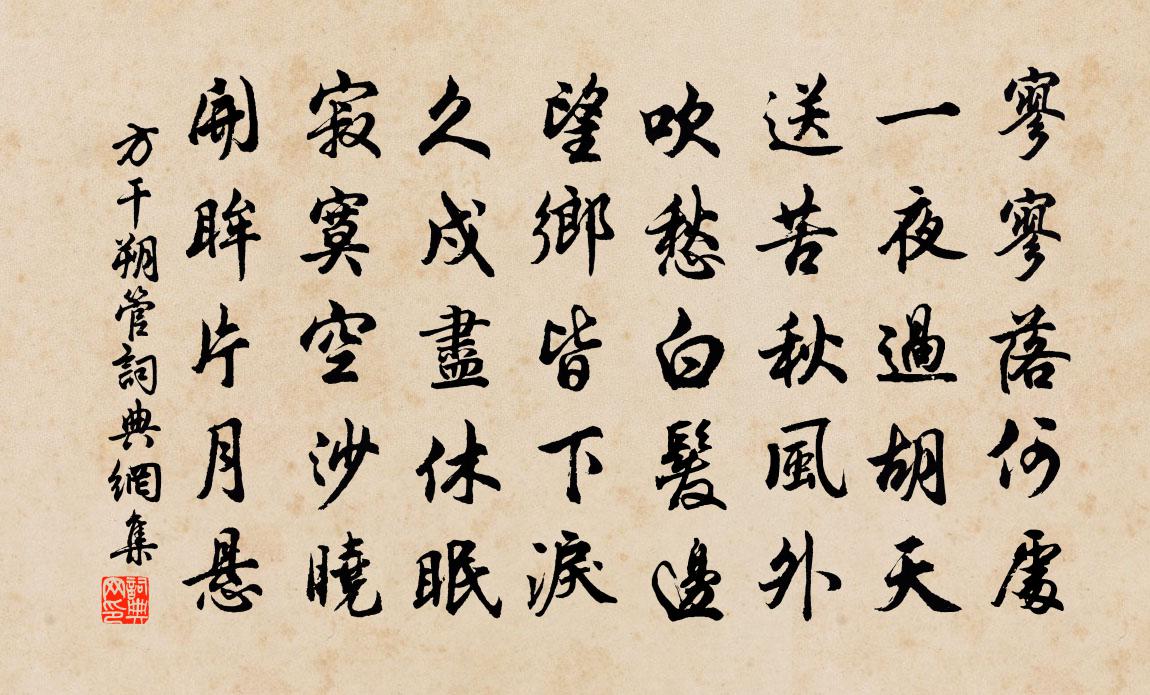 寥寥落何處
一夜過胡天
送苦秋風外
吹愁白髮邊
望鄉皆下淚
久戍盡休眠
寂寞空沙曉
開眸片月悬
方干朔管詞典網集
詞典網印